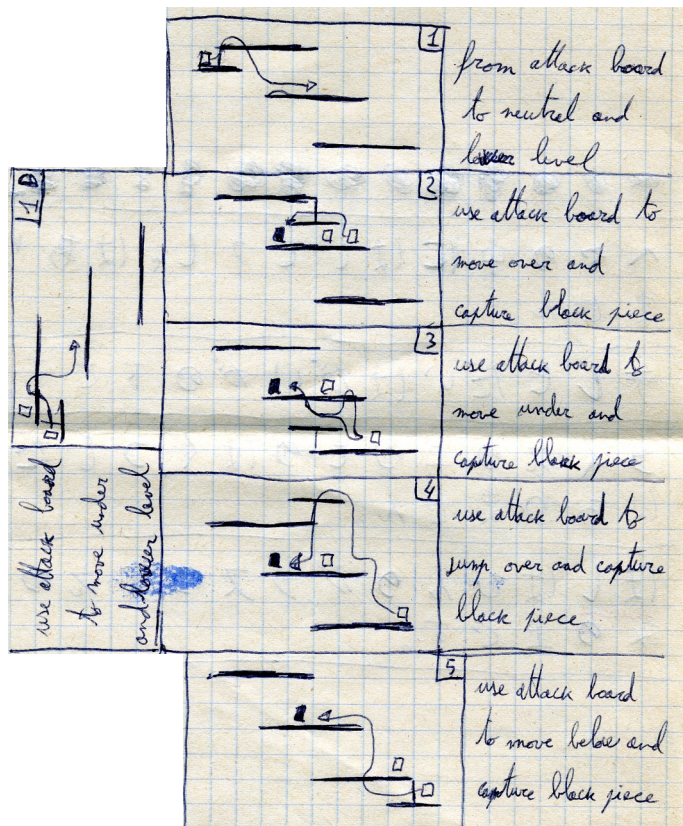 1
from attack board
to neutral and
lower level
2
use attack board to
move over and
capture black piece
3
use attack board to
move under and
capture black piece
4
use attack board to
jump over and capture
black piece
5
use attack board
to move below and
capture black piece
1B
use attack board
to move under
and lower level